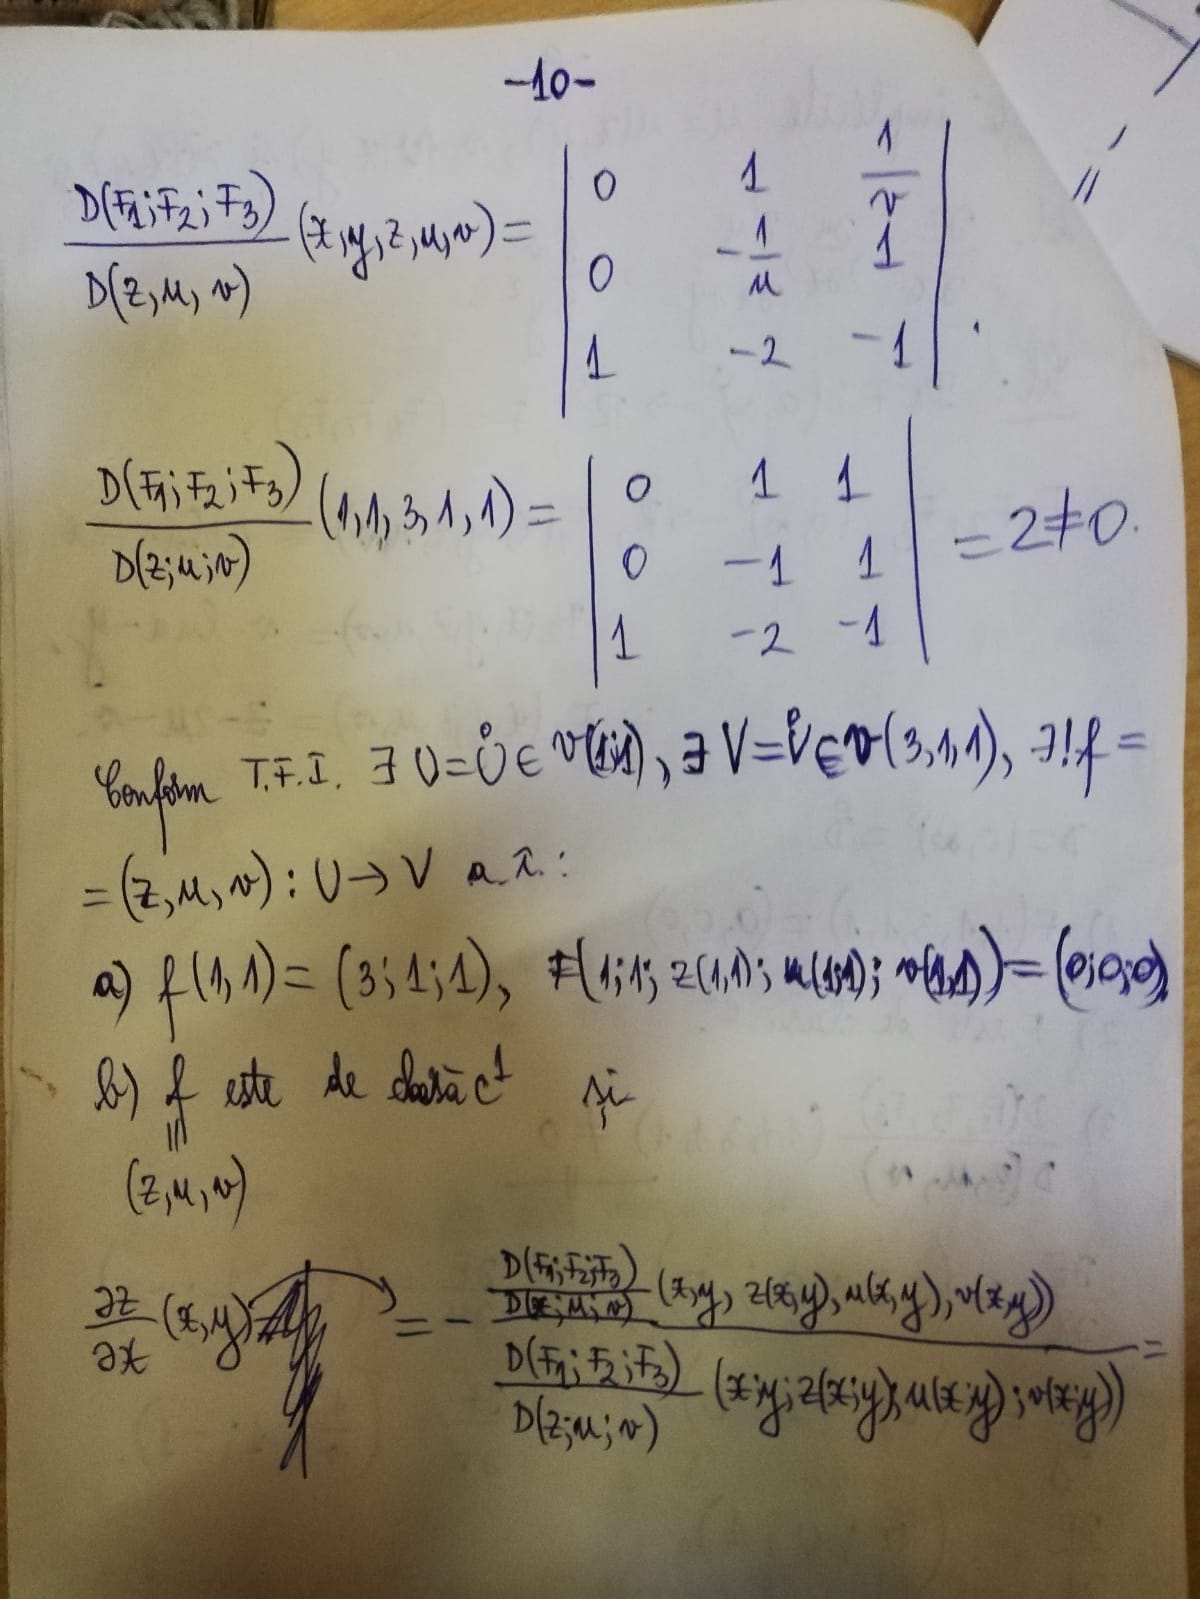 -10-
D(F1; F2; F3)/D(z, u, v) (x, y, z, u, v) = | 0 1 1/v |
| 0 -1/u 1 |
| 1 -2 -1 | .
D(F1; F2; F3)/D(z; u; v) (1, 1, 3, 1, 1) = | 0 1 1 |
| 0 -1 1 | = 2 ≠ 0.
| 1 -2 -1 |
Conform T.F.I. ∃ U = Ů ∈ V(1;1), ∃ V = V̊ ∈ V(3,1,1), ∃! f =
= (z, u, v) : U → V a.î. :
a) f(1,1) = (3; 1; 1), F(1; 1; z(1,1); u(1;1); v(1,1)) = (0;0;0)
b) f este de clasă C¹ și
=
(z, u, v)
∂z/∂x (x, y) = - D(F1; F2; F3)/D(x; u; v) (x, y, z(x,y), u(x,y), v(x,y)) / D(F1; F2; F3)/D(z; u; v) (x; y; z(x;y); u(x;y); v(x;y)) =